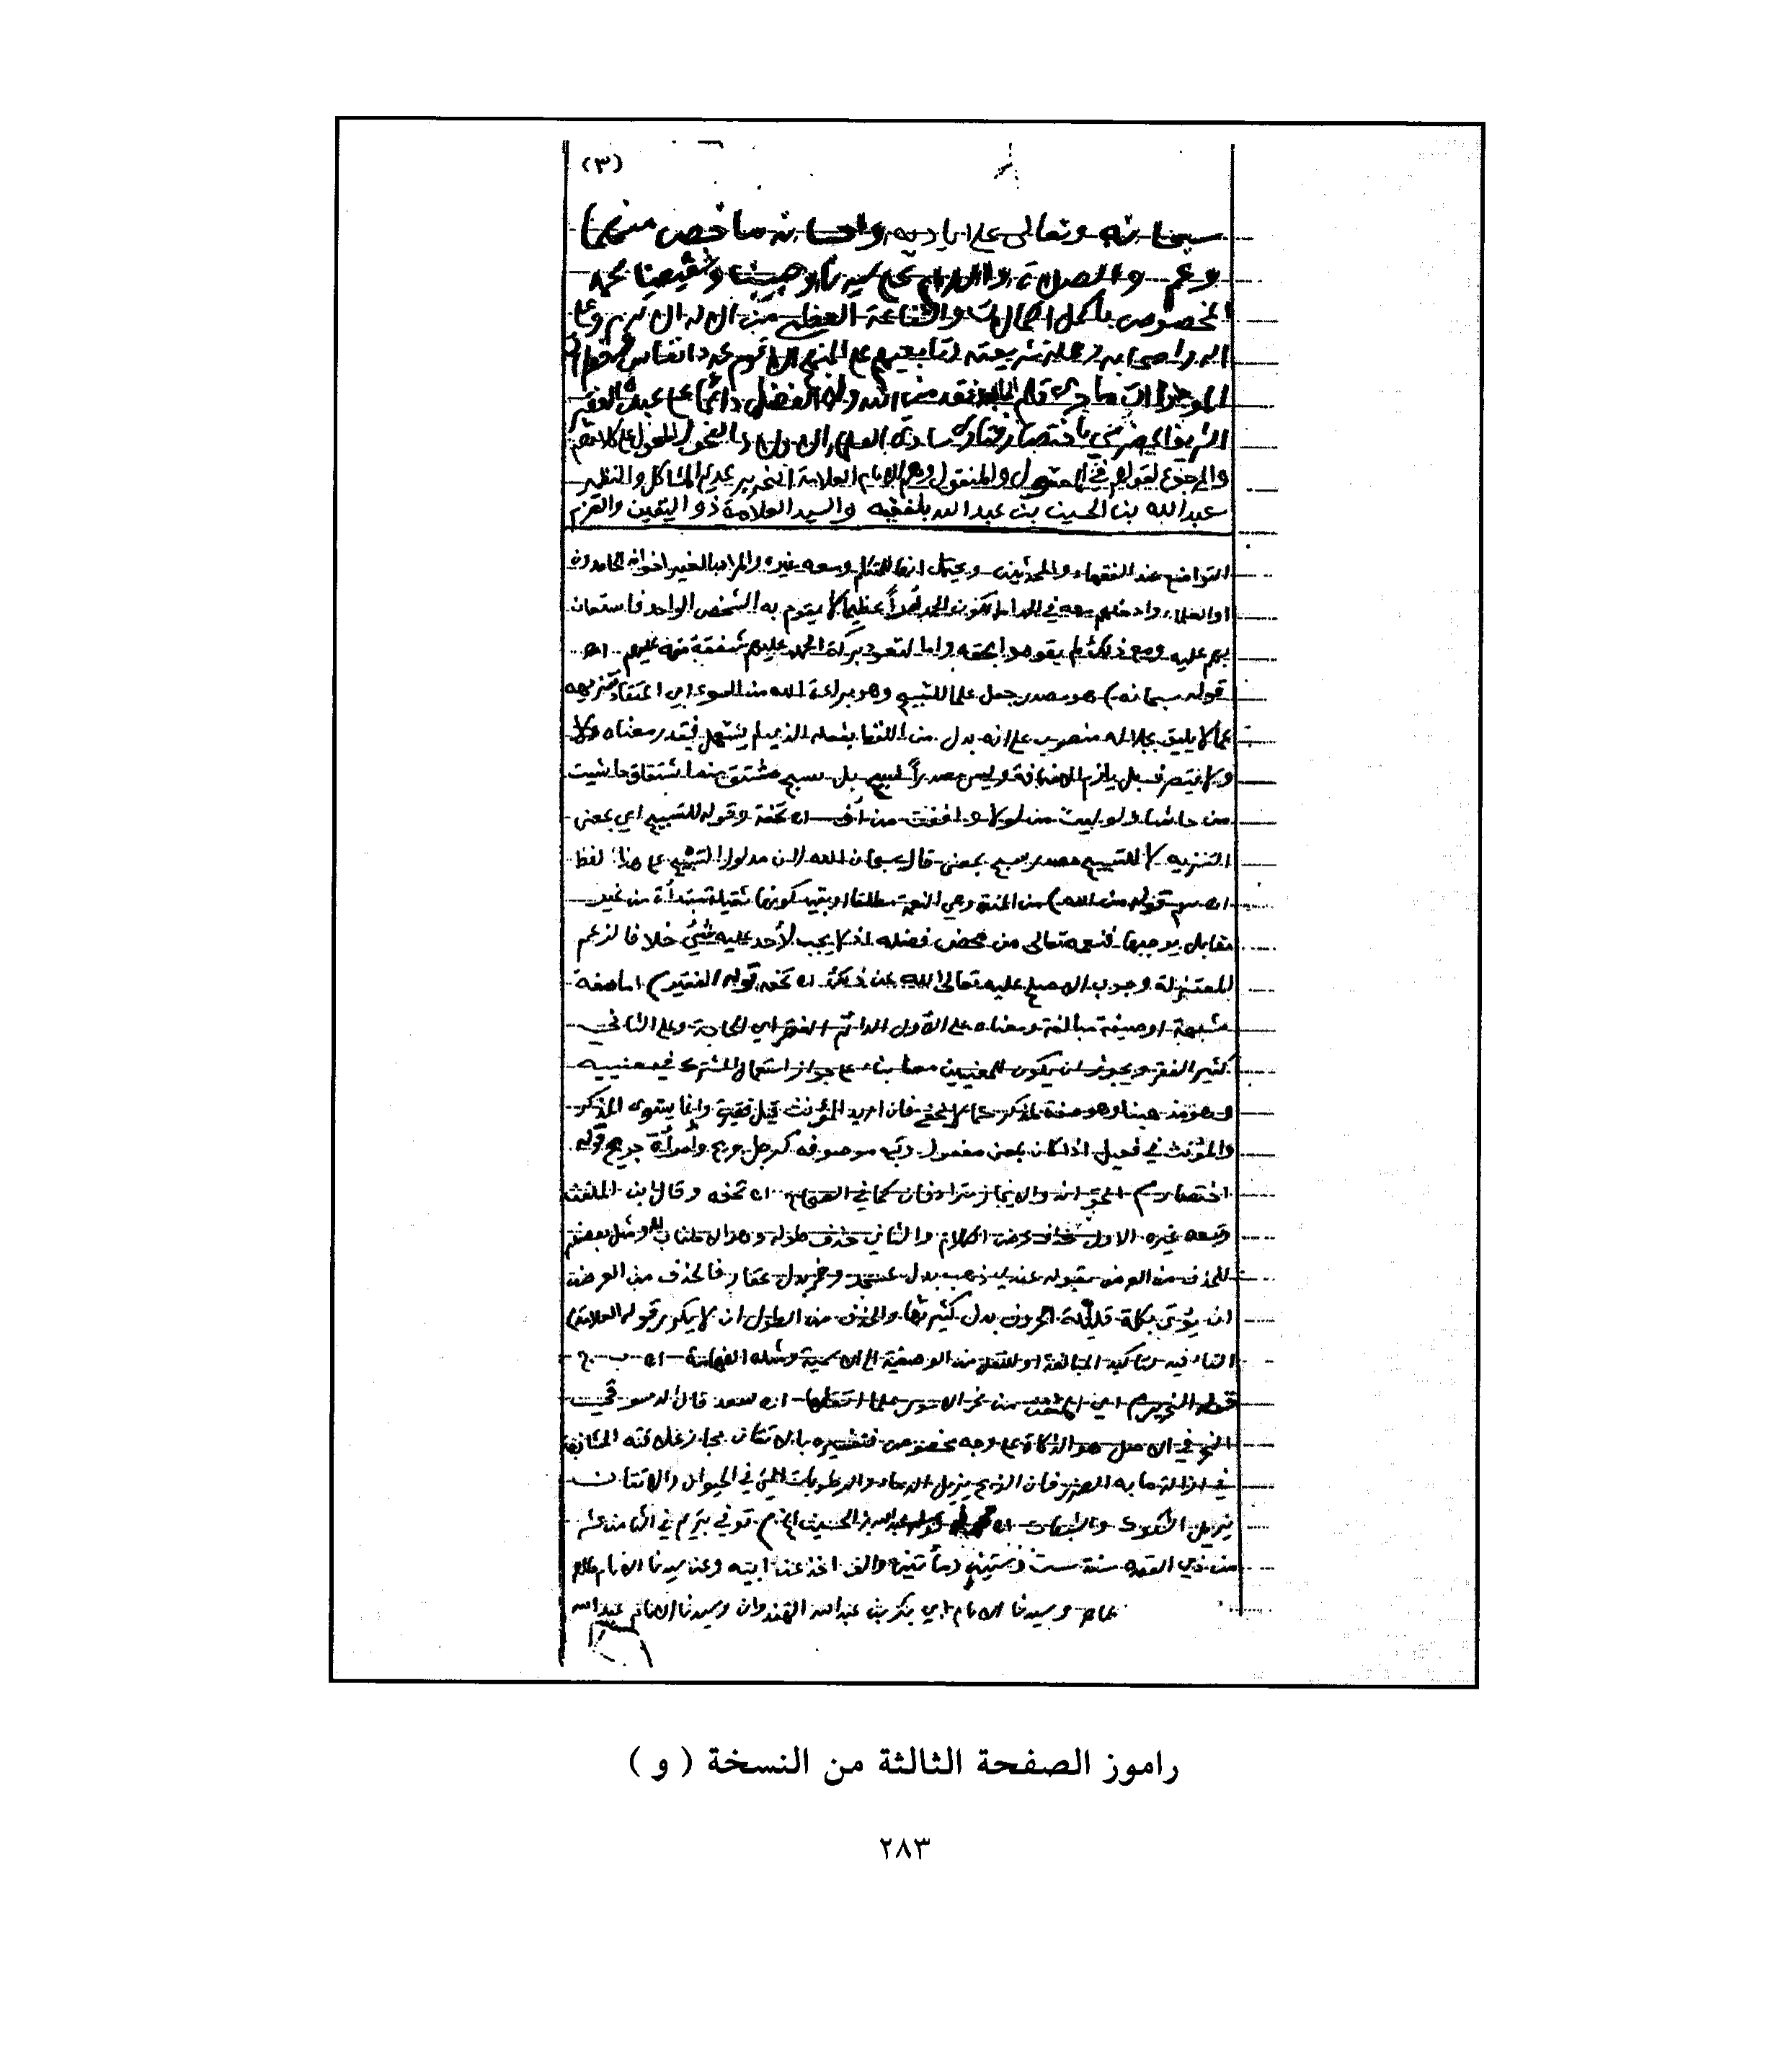 (٣)
سبحانه وتعالى على أياديه وإحسانه ما خص منهما
وعم والصلاة والسلام على سيدنا وحبيبنا وشفيعنا محمد
المخصوص بأكمل الكمالات والشفاعة العظمى من الإله الأكرم وعلى
اله وأصحابه وحملة شريعته وتابعيهم على المنهج الأقوم عدد أنفاس
الموجودات ما جرى قلم فقد من الله وله الفضل دائما على عبده الفقير
الشريف الحضرمي باختصار فتاوى سادتي العلماء الفحول المعول على كلامهم
والرجوع لقولهم في المعقول والمنقول وهم الإمام العلامة النحرير عديم المشاكل والنظير
عبدالله بن الحسين بن عبدالله بلفقيه والسيد العلامة ذو اليقين والعزم
التواضع عند الفقهاء والمحدثين ويحتمل انها للمتكلم ومعه غيره والمراد بالغير اخوانه الحامدون
او العلماء وادخلهم معه في الحمد لكون الحمد أمراً عظيما لا يقوم به الشخص الواحد فاستعان
بهم عليه ومع ذلك لم يقوموا بحقه واما لتعود بركة الحمد عليهم شفقة منه عليهم اهـ
قوله سبحانه) هو مصدر جعل علما للتسبيح وهو براءة الله من السوء اي اعتقاد تنزيهه
عما لا يليق بجلاله منصوب على انه بدل من اللفظ بفعله الذي لم يستعمل فيقدر معناه ولا
ولا يتصرف بل يلزم الاضافة وليس مصدراً لسبح بل سبح مشتق منه اشتقاق حاشيت
من حاشا ولوليت من لولا وأففت من أف اهـ تحفة وقوله للتسبيح اي بمعنى
التنزيه لا للتسبيح مصدر سبح بمعنى قال سبحان الله لان مدلول التسبيح على هذا لفظ
اهـ سم قوله من الله) من المنة وهي النعمة مطلقا او بقيد كونها ثقيلة مبتدأة من غير
مقابل يوجبها فنعمه تعالى من محض فضله اذ لا يجب لأحد عليه شيء خلافا لزعم
المعتزلة وجوب الاصلح عليه تعالى الله عن ذلك اهـ تحفه قوله الفقير) اما صفة
مشبهة او صيغة مبالغة ومعناه على الأول الدائم الفقر اي الحاجة وعلى الثاني
كثير الفقر ويجوز ان يكون للمعنيين معا بناء على جواز استعمال المشترك في معنييه
وهو مذهبنا وهو صفة لمذكر كما لا يخفى فان اريد المؤنث قيل فقيرة وانما يستوي المذكر
والمؤنث في فعيل اذا كان بمعنى مفعول وتبع موصوفه كرجل جريح وامرأة جريح قوله
اختصار) هو والايجاز مترادفان كما في الصحاح اهـ تحفه وقال ابن الملقن
وتبعه غيره الاول حذف عرض الكلام والثاني حذف طوله وهو الاطناب ومثل بعضهم
للحذف من العرض بقوله عندي ذهب بدل عسجد وخمر بدل عقار فالحذف من العرض
ان يؤتى بكلمة قليلة الحروف بدل كثيرتها والحذف من الطول ان لا يكرر قوله العلامة)
التاء فيه لتأكيد المبالغة او للنقل من الوصفية الى الاسمية ومثله الفهامة اهـ ب ج
قوله النحرير) اي المتقن من نحر الامور علما اتقنها اهـ سعد قال الدسوقي
النحر في الاصل هو الذكاة على وجه مخصوص فتفسيره بالاتقان مجاز علاقته المشابهة
في ازالة ما به الضرر فان الذبح يزيل الدماء والرطوبات التي في الحيوان والاتقان
يزيل الشكوك والشبهات اهـ قوله عبدالله بن الحسين الخ) توفي بتريم في الثامن عشر
من ذي القعدة سنة ست وستين ومأتين والف اخذ عن ابيه وعن سيدنا الامام طاهر
وسيدنا الامام ابي بكر بن عبدالله الهندوان وسيدنا الامام عبدالله
راموز الصفحة الثالثة من النسخة ( و )
٢٨٣